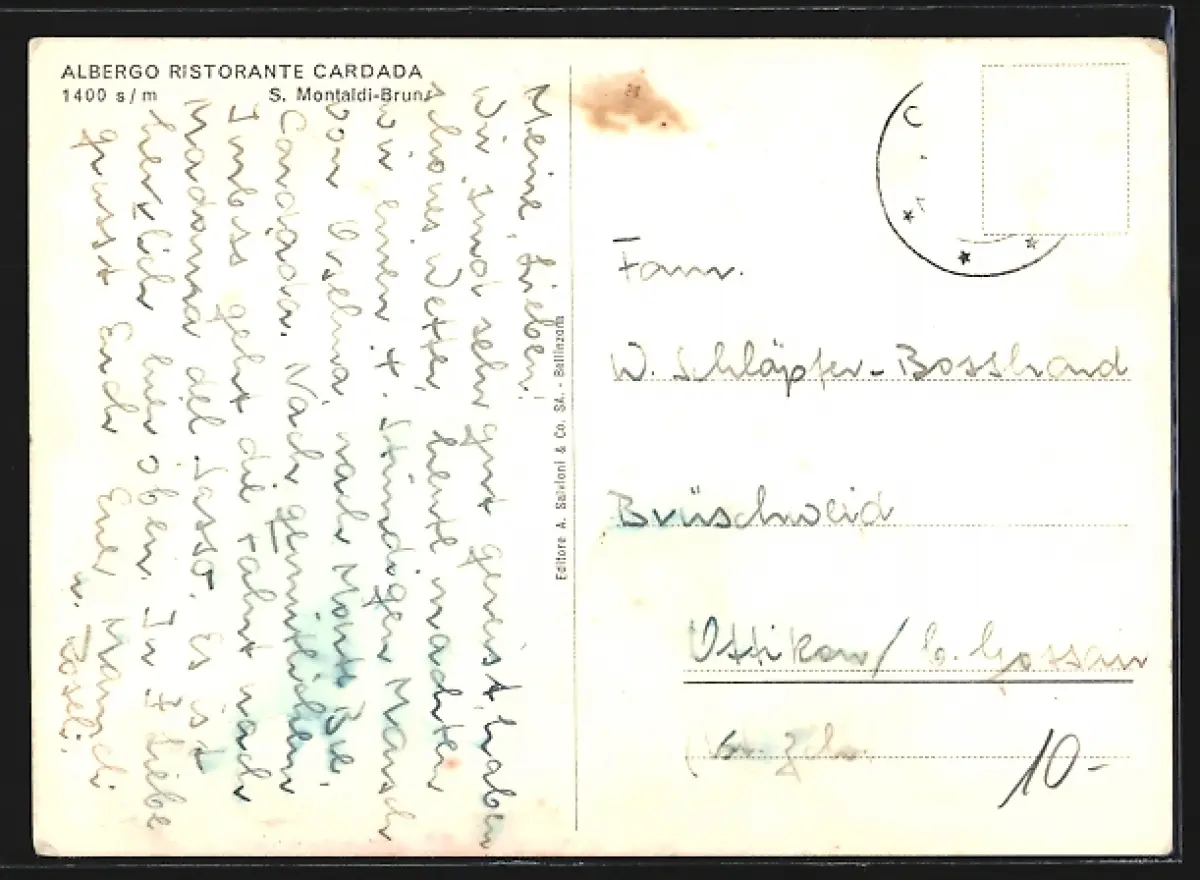 ALBERGO RISTORANTE CARDADA
1400 s/m S. Montaldi-Bruni
Meine Lieben!
Wir sind sehr gut gereist, haben
schönes Wetter, heute machten
wir einen stündigen Marsch
von Orselina nach Monti Bre.
Cardada. Nach gemütlichem
Imbiss geht die Fahrt nach
Madonna del Sasso. Es ist
herrlich hier oben. In Liebe
grüsst Euch Euer
u. Roseli.
Editore A. Salvioni & Co. SA. - Bellinzona
Fam.
W. Schläpfer-Bosshard
Brüschweid
Ottikon / b. Gossau
Kt. Zch.
10-